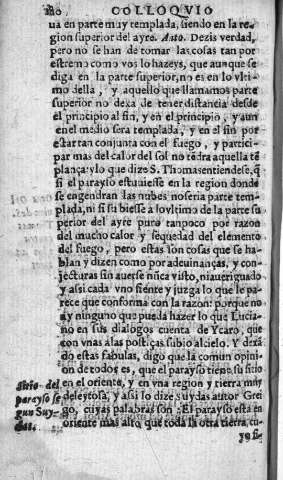 COLLOQVIO
ua en parte muy templada, siendo en la re-
gion superior del ayre. Anto. Dezis verdad,
pero no se han de tomar las cosas tan por
estremo como vos lo hazeys, que aunque se
diga en la parte superior, no es en lo vlti-
mo della, y aquello que llamamos parte
superior no dexa de tener distancia desde
el principio al fin, y en el principio, y aun
en el medio sera templada, y en el fin por
estar tan conjunta con el fuego, y partici-
par mas del calor del sol no tẽdra aquella tẽ
plança: y lo que dize S. Thomas entiendese, q̃
si el parayso estuuiesse en la region donde
se engendran las nubes no seria parte tem-
plada, ni si subiesse a lo vltimo de la parte su
perior del ayre puro tanpoco por razon
del mucho calor y sequedad del elemento
del fuego, pero estas son cosas que se ha-
blan y dizen como por adeuinanças, y con-
jecturas sin auerse nũca visto, ni aueriguado
y assi cada vno siente y juzga lo que le pa-
rece que conforma con la razon: porque no
ay ninguno que pueda hazer lo que Lucia-
no en sus dialogos cuenta de Ycaro, que
con vnas alas postiças subio al cielo. Y dexã
do estas fabulas, digo que la comun opini-
on de todos es, que el parayso tiene su sitio
en el oriente, y en vna region y tierra muy
deleytosa, y assi lo dize suydas autor Grie
go, cuyas palabras son: El parayso esta en
oriente mas alto que toda la otra tierra, cu-
Sitio del
parayso se
gun Suy-
das.